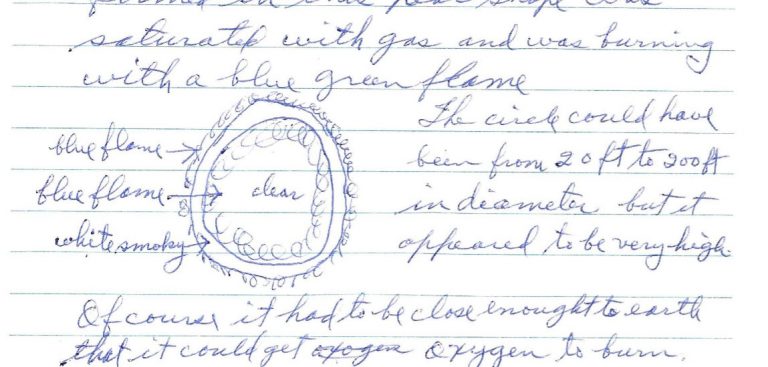 formed in this pear shape was
saturated with gas and was burning
with a blue green flame
The circle could have
blue flame
been from 20 ft to 200 ft
blue flame
clear
in diameter but it
white smoky
appeared to be very high.
Of course it had to be close enought to earth
that it could get oxogen oxygen to burn.